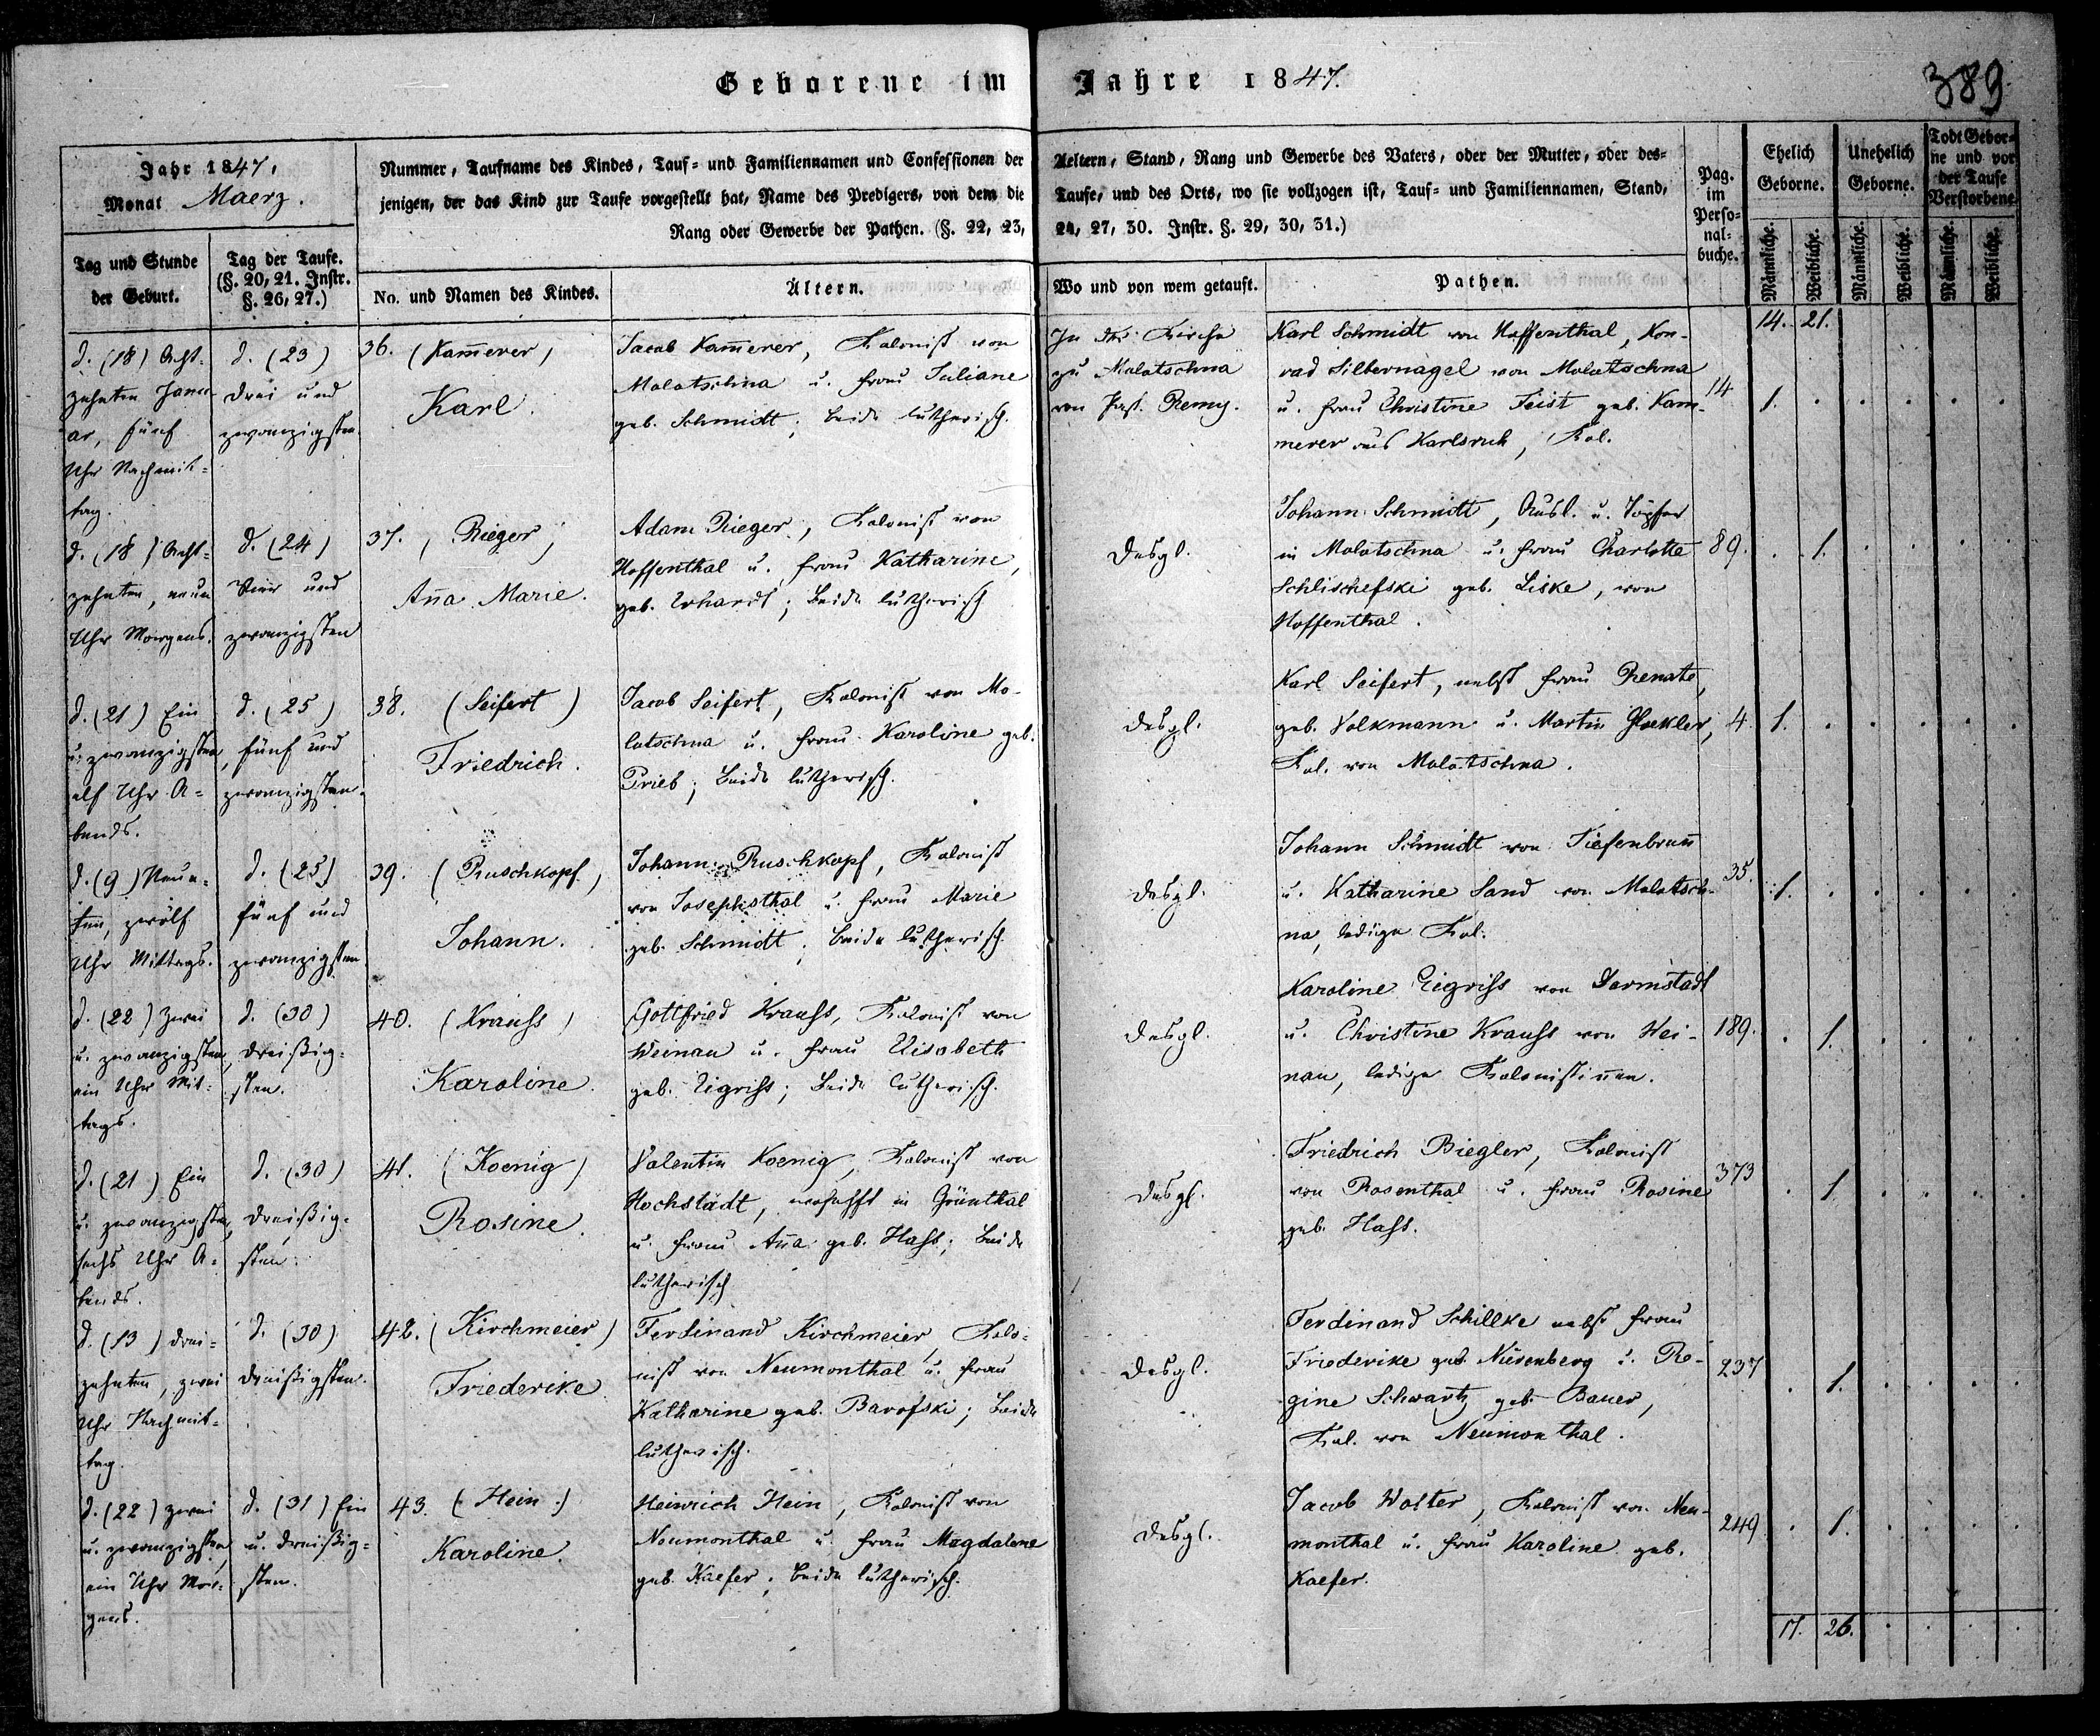 Geborene im Jahre 1847.
389
Jahr 1847.
Monat Maerz.
Nummer, Taufname des Kindes, Tauf- und Familiennamen und Confessionen der Aeltern, Stand, Rang und Gewerbe des Vaters, oder der Mutter, oder des-
jenigen, der das Kind zur Taufe vorgestellt hat, Name des Predigers, von dem die Taufe, und des Orts, wo sie vollzogen ist, Tauf- und Familiennamen, Stand,
Rang oder Gewerbe der Pathen. (§. 22, 23, 24, 27, 30. Instr. §. 29, 30, 31.)
Pag.
im
Perso-
nal-
buche.
Ehelich
Geborne.
Unehelich
Geborne.
Todt Gebor-
ne und vor
der Taufe
Verstorbene
Tag und Stunde
der Geburt.
Tag der Taufe.
(§. 20, 21. Instr.
§. 26, 27.)
No. und Namen des Kindes.
Ältern.
Wo und von wem getauft.
Pathen.
Männliche.
Weibliche.
Männliche.
Weibliche.
Männliche.
Weibliche.
14. 21.
d. (18) Acht-
zehnten Janu-
ar, fünf
Uhr Nachmit-
tag.
d. (23)
drei und
zwanzigsten.
36. (Kam̅erer)
Karl.
Jacob Kam̅erer, Kolonist von
Molotschna u. Frau Juliane
geb. Schmidt; beide lutherisch.
In der Kirche
zu Molotschna
von Past. Remy.
Karl Schmidt von Hoffenthal, Kon-
rad Silbernagel von Molotschna
u. Frau Christine Feist geb. Kam-
merer aus Karlsruh, Kol.
14
1.
d. (18) Acht-
zehnten, neun
Uhr Morgens.
d. (24)
Vier und
zwanzigsten
37. (Rieger)
An̅a Marie.
Adam Rieger, Kolonist von
Hoffenthal u. Frau Katharine,
geb. Erhardt; beide lutherisch
Desgl.
Johann Schmidt, Ausl. u. Töpfer
in Molotschna u. Frau Charlotte
Schlischefski geb. Liske, von
Hoffenthal.
89.
1.
d. (21) Ein
u. zwanzigsten,
elf Uhr A-
bends.
d. (25)
fünf und
zwanzigsten.
38. (Seifert)
Friedrich.
Jacob Seifert, Kolonist von Mo-
lotschna u. Frau Karoline geb.
Prieb; beide lutherisch.
Desgl.
Karl Seifert, nebst Frau Renate,
geb. Volkmann u. Martin Glockler,
Kol. von Molotschna.
4.
1.
d. (9) Neun-
ten, zwölf
Uhr Mittags.
d. (25)
fünf und
zwanzigsten
39. (Ruschkopf)
Johann.
Johann Ruschkopf, Kolonist
von Josephsthal u. Frau Marie
geb. Schmidt; beide lutherisch
Desgl.
Johann Schmidt von Tiefenbrun̅
u. Katharine Sand von Molotsch-
na, ledige Kol.
35.
1.
d. (22) Zwei
u. zwanzigsten,
ein Uhr Mit-
tags.
d. (30)
dreißig-
sten.
40. (Krauss)
Karoline.
Gottfried Krauss, Kolonist von
Weinau u. Frau Elisabeth
geb. Eigriss; beide lutherisch.
Desgl.
Karoline Eigriss von Darmstadt
u. Christine Krauss von Wei-
nau, ledige Kolonistin̅en.
189.
1.
d. (21) Ein
u. zwanzigsten,
sechs Uhr A-
bends.
d. (30)
dreißig-
sten.
41. (Koenig)
Rosine.
Valentin Koenig, Kolonist von
Hochstädt, wohnhaft in Grünthal
u. Frau An̅a geb. Hass; beide
lutherisch
Desgl.
Friedrich Biegler, Kolonist
von Rosenthal u. Frau Rosine
geb. Hass.
373
1.
d. (13) drei-
zehnten, zwei
Uhr Nachmit-
tag.
d. (30)
dreißigsten.
42. (Kirchmeier)
Friederike
Ferdinand Kirchmeier, Kolo-
nist von Neumonthal u. Frau
Katharine geb. Barofski; beide
lutherisch.
Desgl.
Ferdinand Schillke nebst Frau
Friederike geb. Nürenberg u. Re-
gine Schwartz geb. Bauer,
Kol. von Neumonthal.
237
1.
d. (22) zwei
u. zwanzigsten,
ein Uhr Mor-
gens.
d. (31) Ein
u. dreißig-
sten.
43. (Hein.)
Karoline.
Heinrich Hein, Kolonist von
Neumonthal u. Frau Magdalene
geb. Kaefer; beide lutherisch.
Desgl.
Jacob Wolter, Kolonist von Neu-
monthal u. Frau Karoline geb.
Kaefer.
249
1.
17. 26.